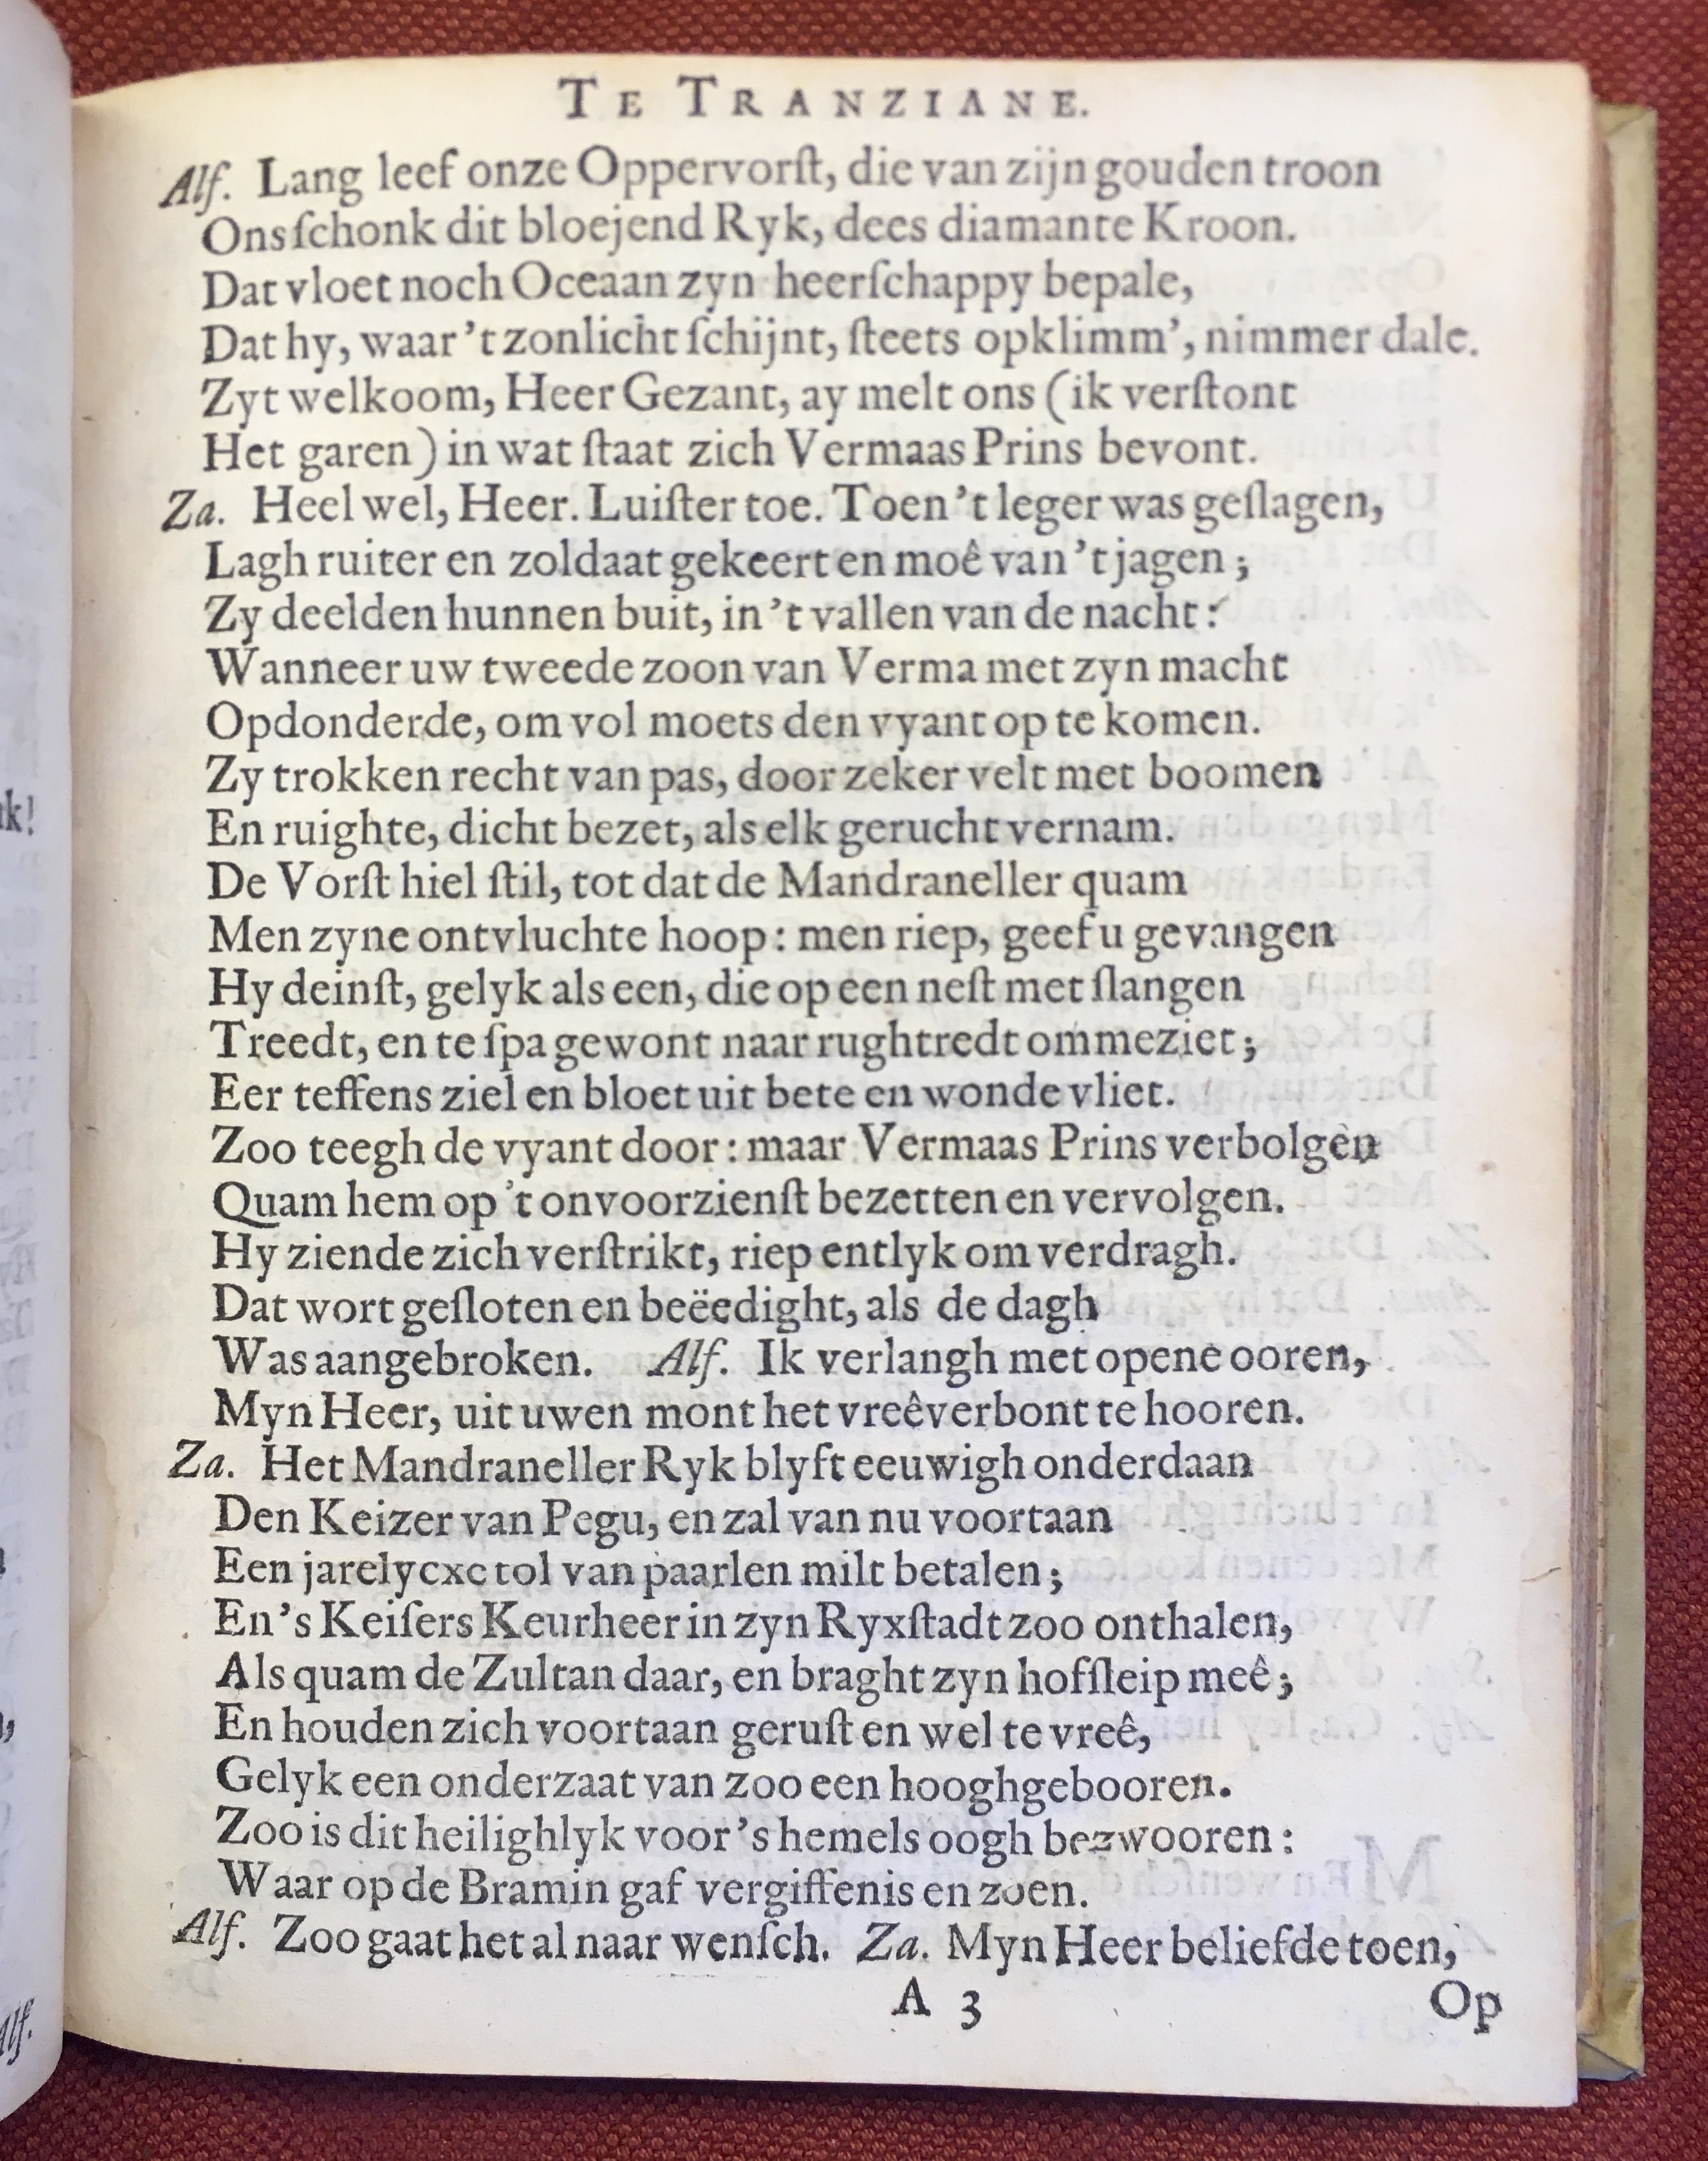 TE TRANZIANE.
Alf. Lang leef onze Oppervorſt, die van zijn gouden troon
Ons ſchonk dit bloejend Ryk, dees diamante Kroon.
Dat vloet noch Oceaan zyn heerſchappy bepale,
Dat hy, waar 't zonlicht ſchijnt, ſteets opklimm', nimmer dale.
Zyt welkoom, Heer Gezant, ay melt ons (ik verſtont
Het garen) in wat ſtaat zich Vermaas Prins bevont.
Za. Heel wel, Heer. Luiſter toe. Toen 't leger was geſlagen,
Lagh ruiter en zoldaat gekeert en moê van 't jagen;
Zy deelden hunnen buit, in 't vallen van de nacht:
Wanneer uw tweede zoon van Verma met zyn macht
Opdonderde, om vol moets den vyant op te komen.
Zy trokken recht van pas, door zeker velt met boomen
En ruighte, dicht bezet, als elk gerucht vernam.
De Vorſt hiel ſtil, tot dat de Mandraneller quam
Men zyne ontvluchte hoop: men riep, geef u gevangen
Hy deinſt, gelyk als een, die op een neſt met ſlangen
Treedt, en te ſpa gewont naar rughtredt ommeziet;
Eer teffens ziel en bloet uit bete en wonde vliet.
Zoo teegh de vyant door: maar Vermaas Prins verbolgen
Quam hem op 't onvoorzienſt bezetten en vervolgen.
Hy ziende zich verſtrikt, riep entlyk om verdragh.
Dat wort geſloten en beëedight, als de dagh
Was aangebroken. Alf. Ik verlangh met opene ooren,
Myn Heer, uit uwen mont het vreêverbont te hooren.
Za. Het Mandraneller Ryk blyft eeuwigh onderdaan
Den Keizer van Pegu, en zal van nu voortaan
Een jarelycxe tol van paarlen milt betalen;
En 's Keiſers Keurheer in zyn Ryxſtadt zoo onthalen,
Als quam de Zultan daar, en braght zyn hofſleip meê;
En houden zich voortaan geruſt en wel te vreê,
Gelyk een onderzaat van zoo een hooghgebooren.
Zoo is dit heilighlyk voor 's hemels oogh bezwooren:
Waar op de Bramin gaf vergiffenis en zoen.
Alf. Zoo gaat het al naar wenſch. Za. Myn Heer beliefde toen,
A 3 Op